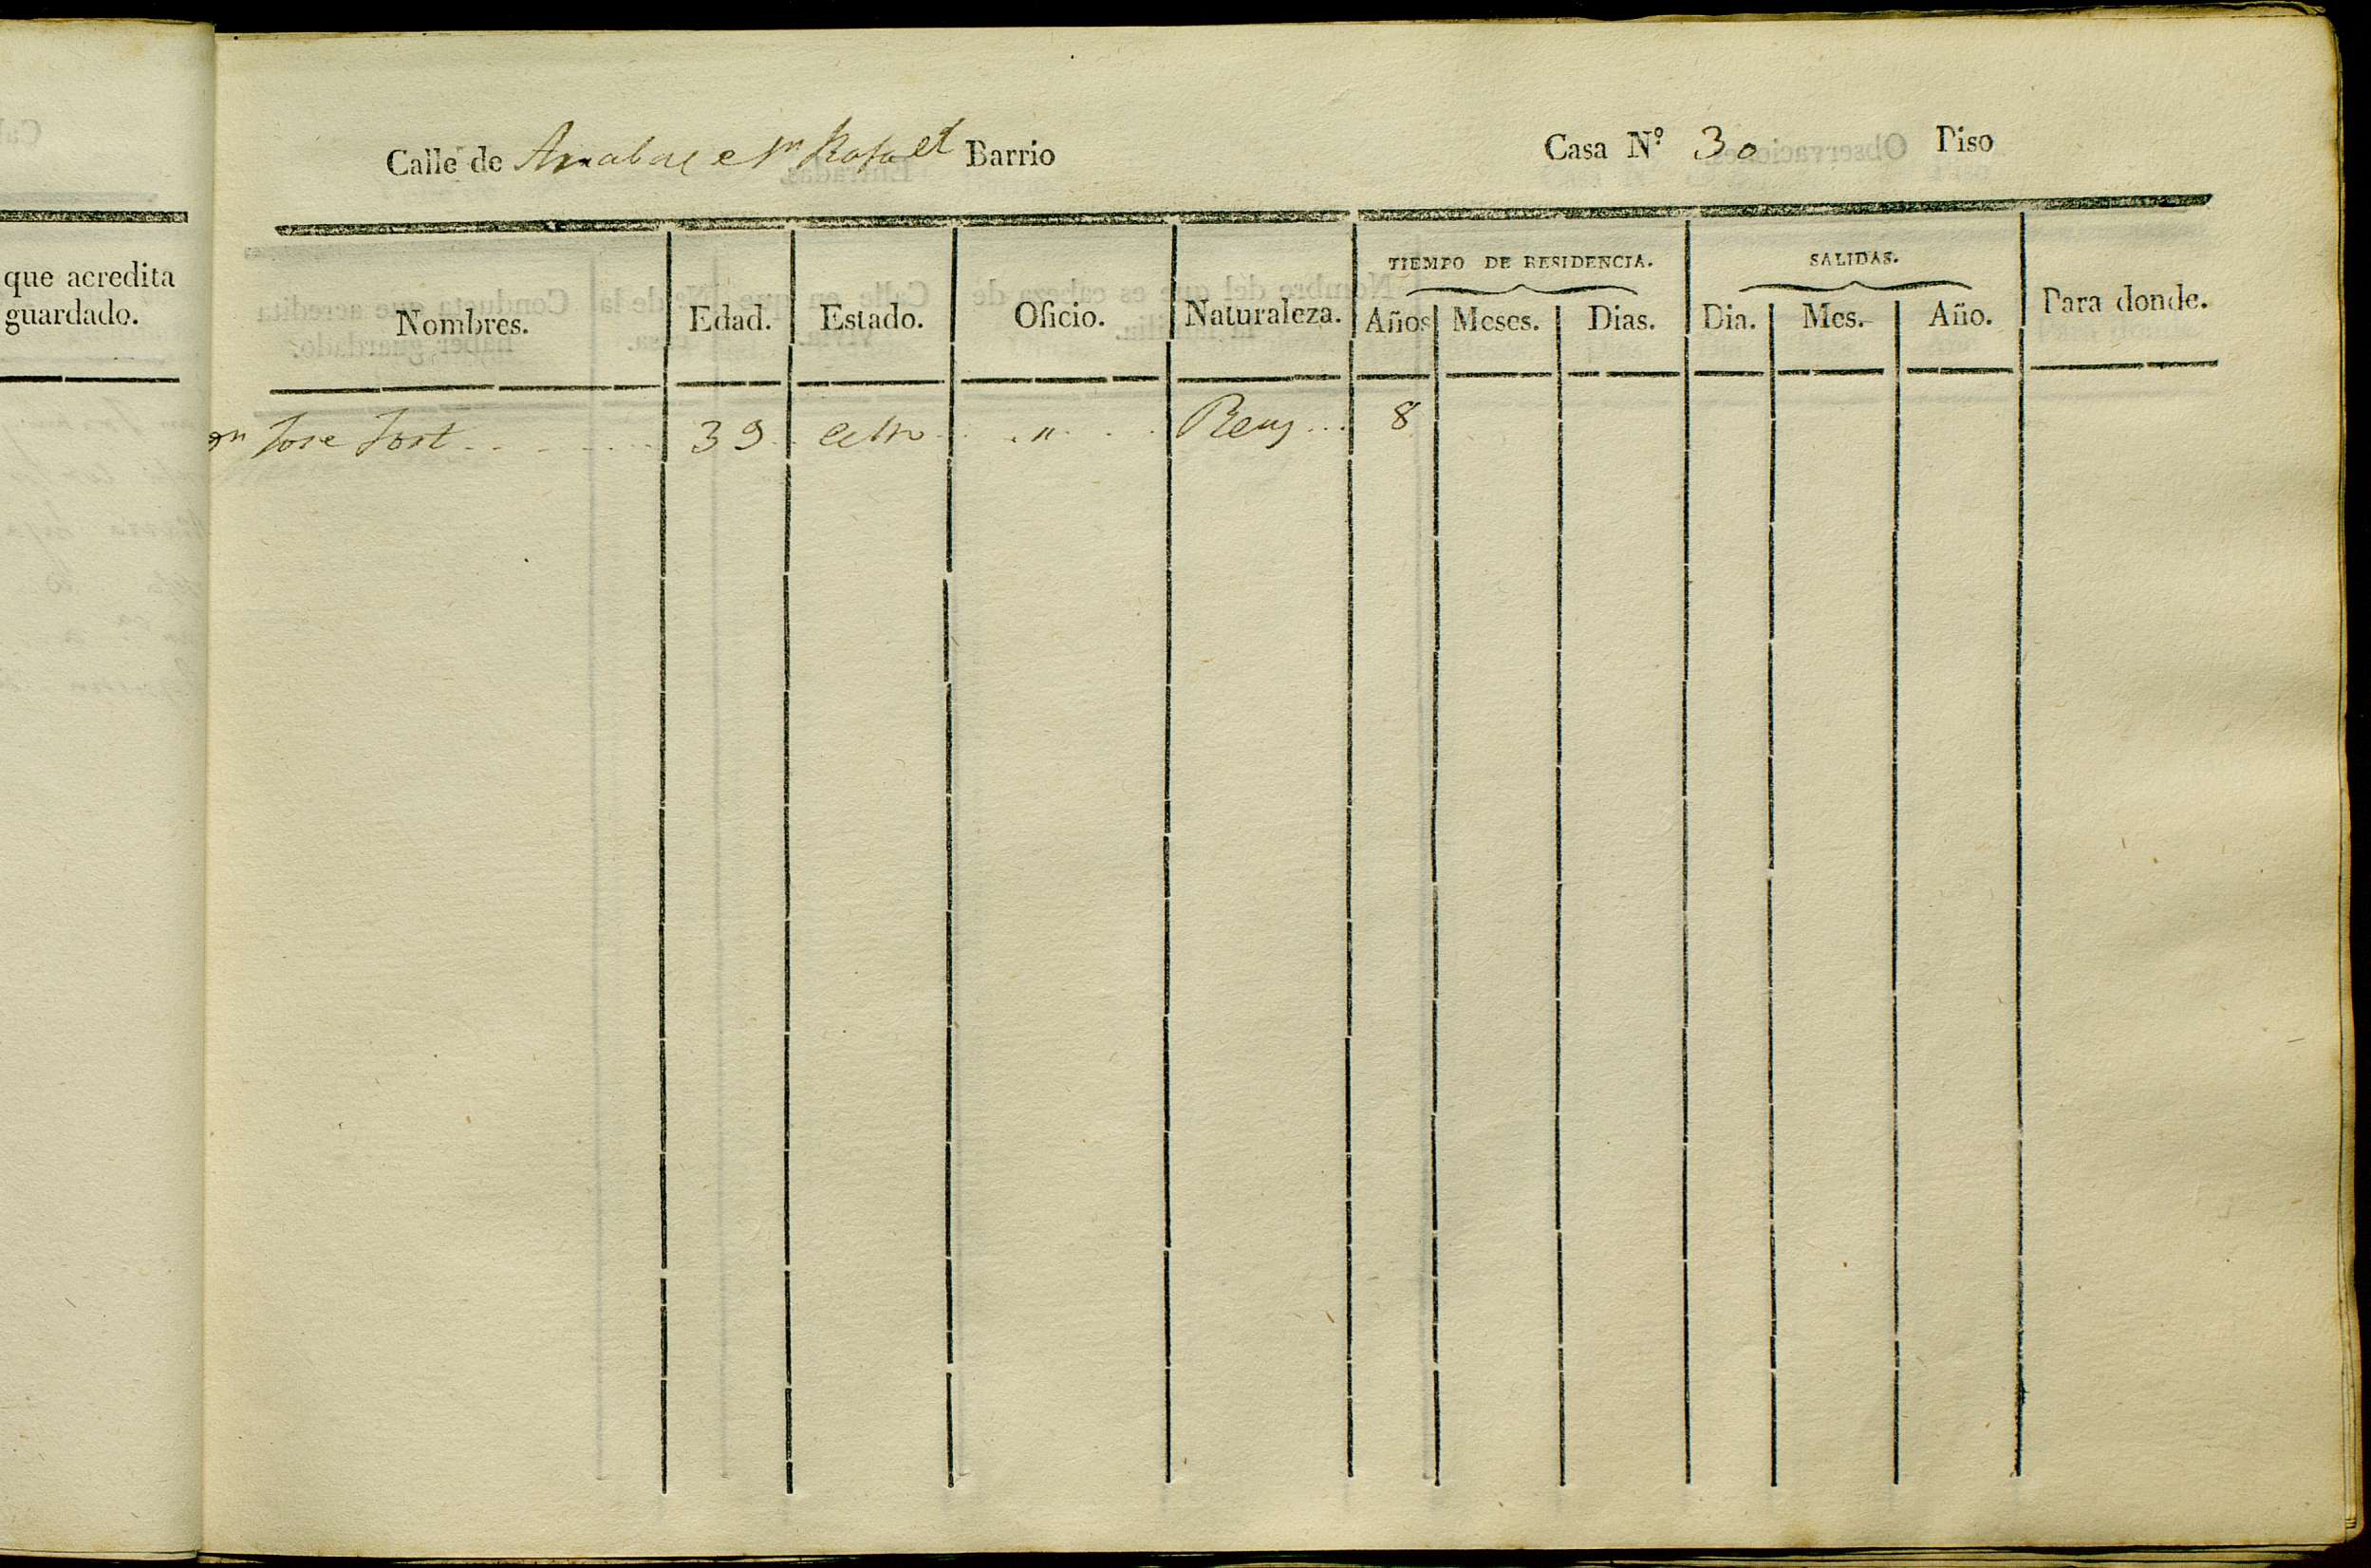 que acredita
guardado.
Calle de Arrabal e Sn Rafael Barrio
Casa N.º 30 Piso
Nombres. Edad. Estado. Oficio. Naturaleza. TIEMPO DE RESIDENCIA. Años Meses. Dias. SALIDAS. Dia. Mes. Año. Para donde.
Dn Jose Font 39 " Reus 8